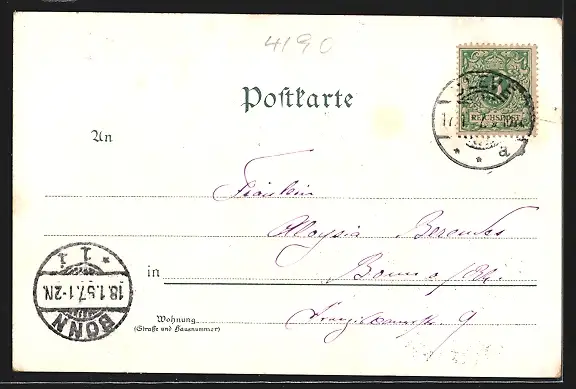 4190
Postkarte
5
REICHSPOST
An
Fräulein
Aloysia Berendes
in Bonn a/Rh.
Wohnung
(Straße und Hausnummer)
9
BONN
18.1.97.1-2N.
* 1 1
* * a